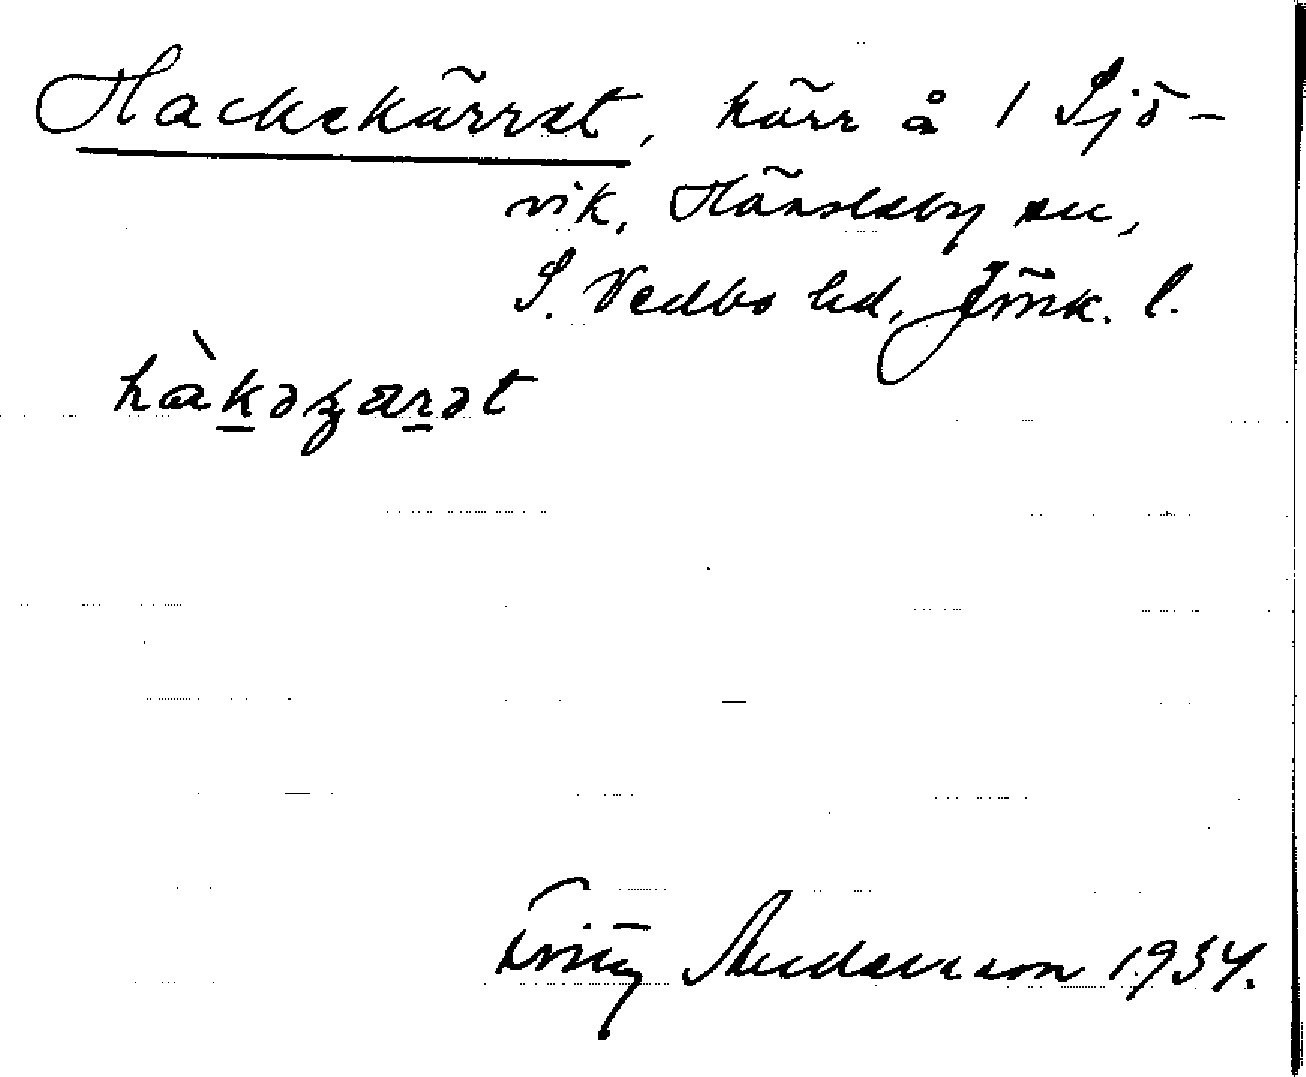 Hackekärret, kärr å 1 Sjö-
vik, Hässleby sn,
S. Vedbo hd, Jönk. l.
hàkəʒarət
Fritz Anderson 1934.